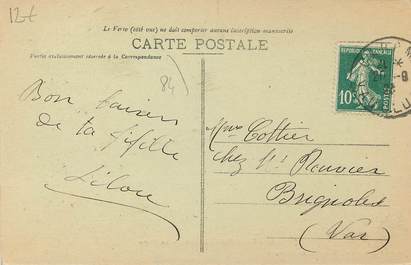 12€
Le Verso (côté vue) ne doit comporter aucune inscription manuscrite
CARTE POSTALE
Partie exclusivement réservée à la Correspondance
84
RÉPUBLIQUE FRANÇAISE
10c
Bon baiser
de ta fifille
Lilou
Mme Cottier
chez Mr Rouvier
Brignoles
(Var)